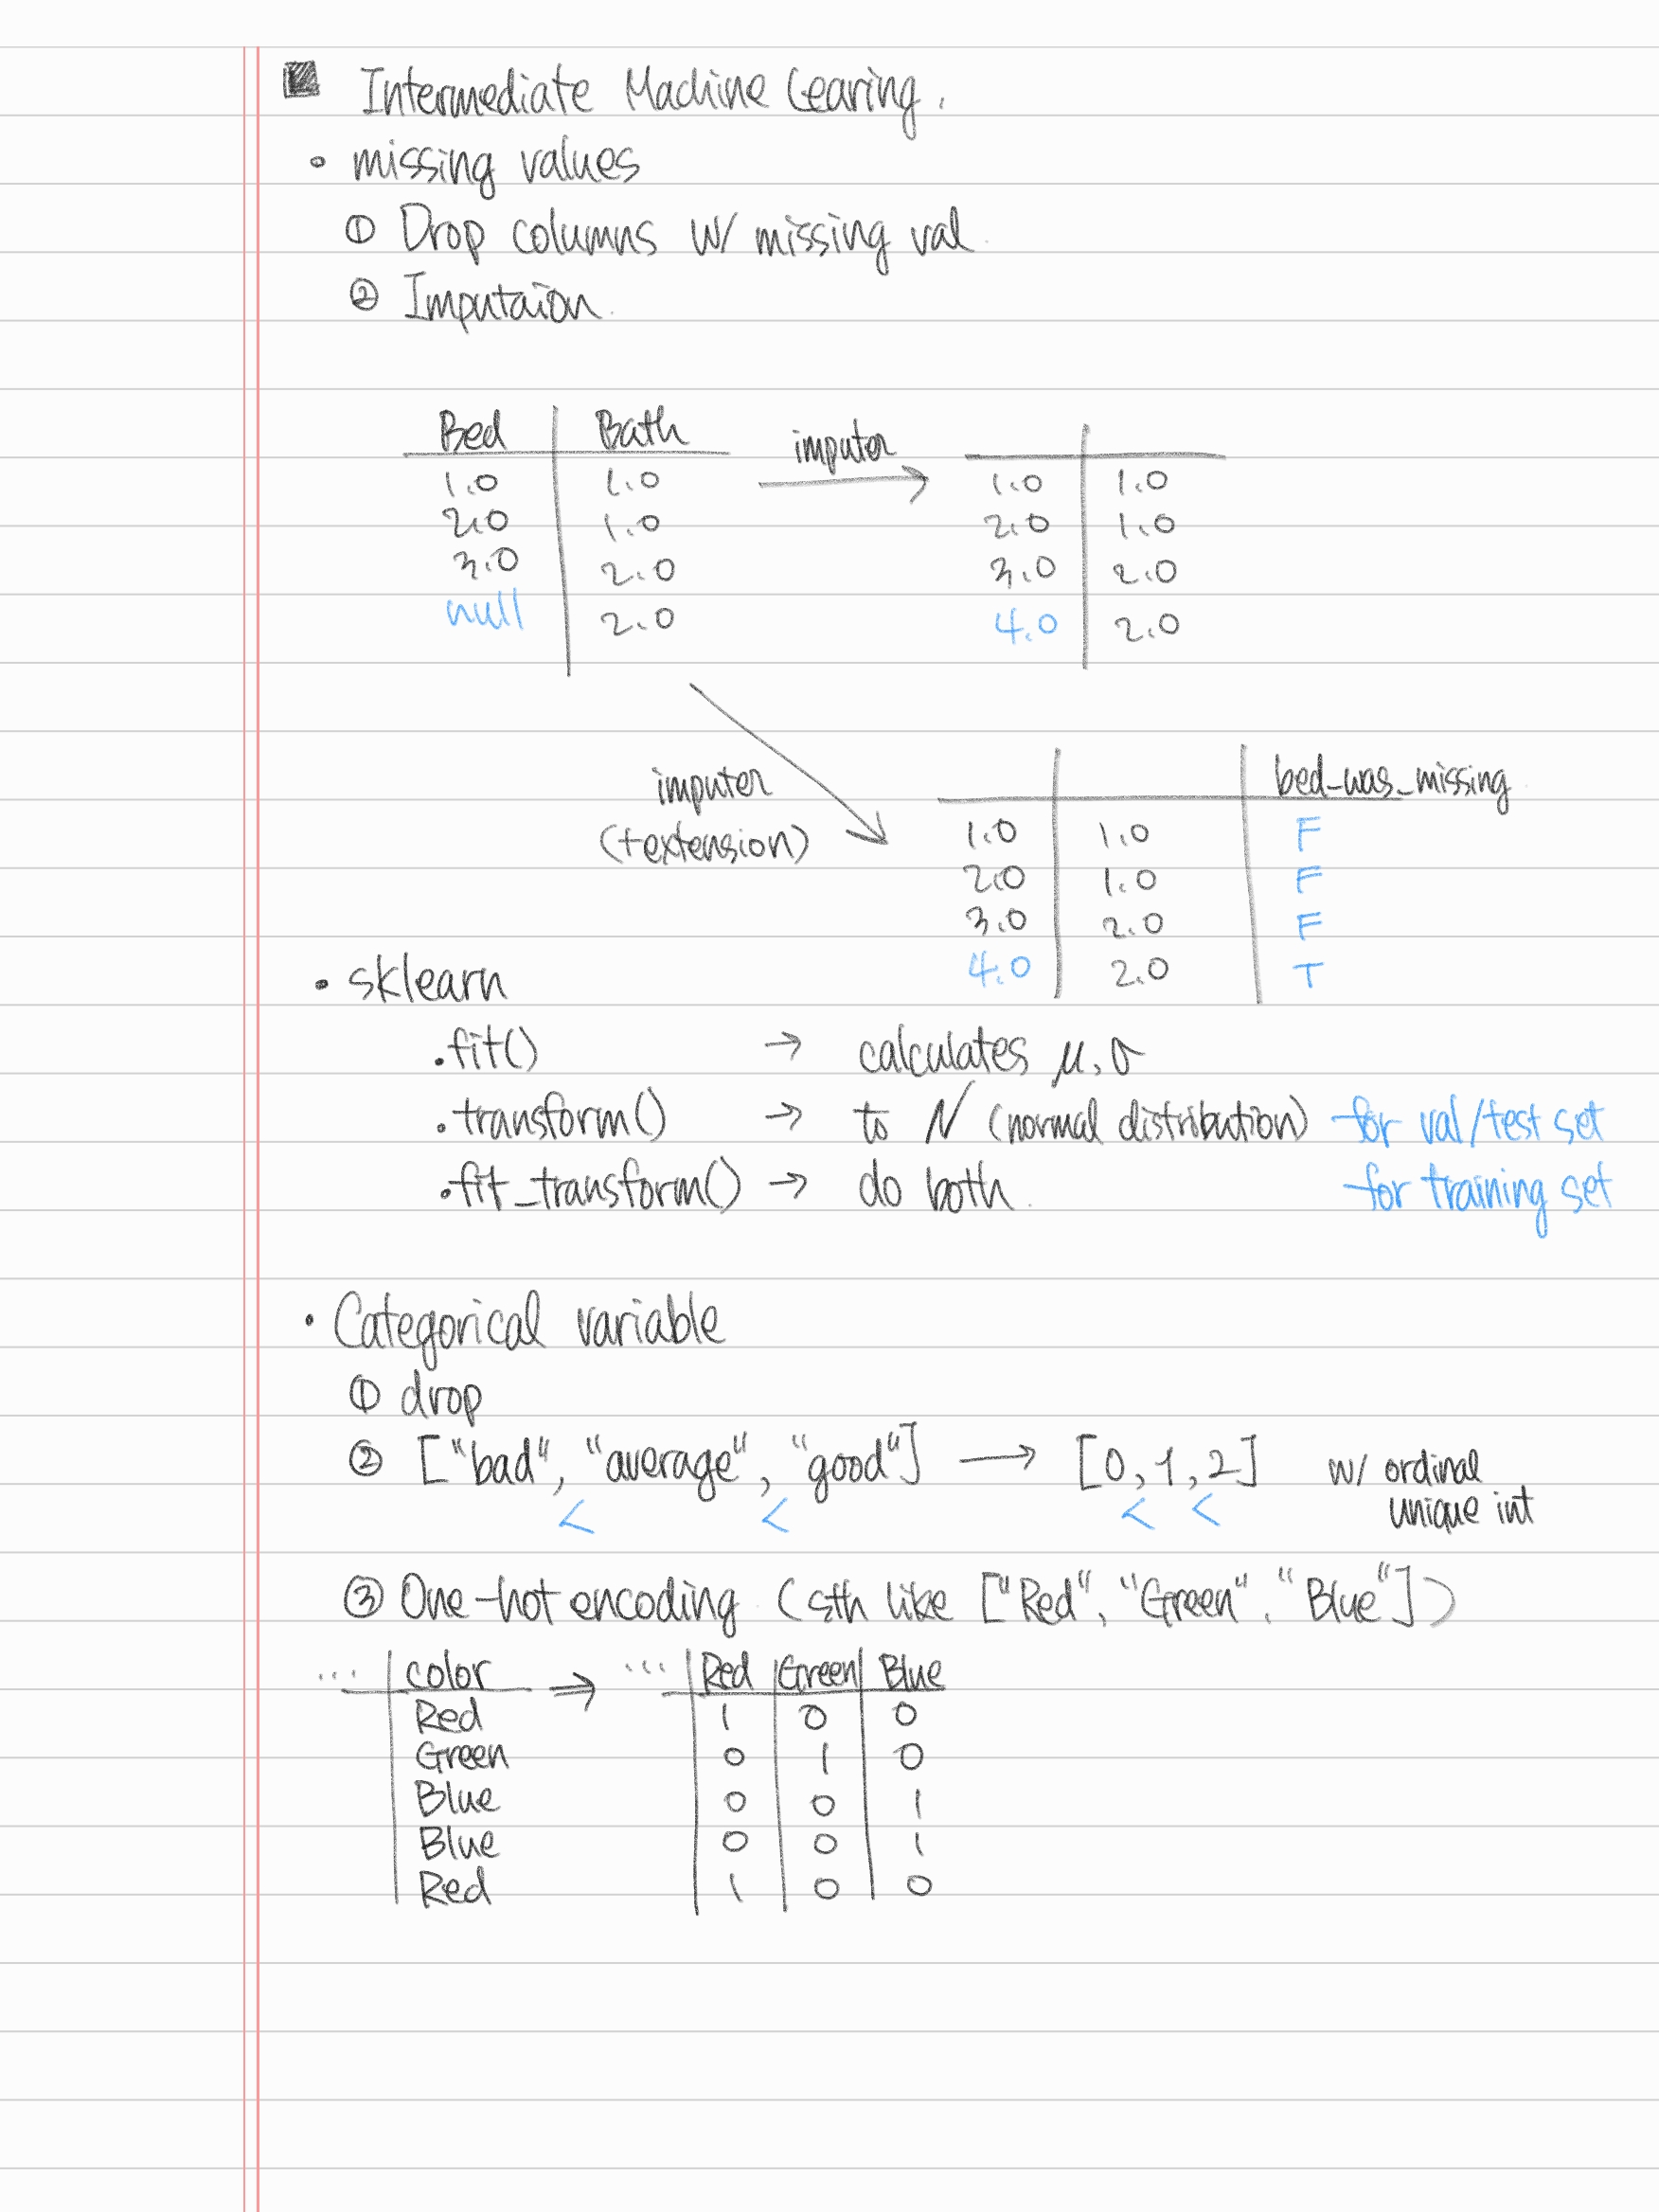 Intermediate Machine Learing.
• missing values
① Drop columns w/ missing val.
② Imputaion.
Bed Bath
1.0 1.0
2.0 1.0
3.0 2.0
null 2.0
imputer
1.0 1.0
2.0 1.0
3.0 2.0
4.0 2.0
imputer
(+extension)
bed_was_missing
1.0 1.0 F
2.0 1.0 F
3.0 2.0 F
4.0 2.0 T
• sklearn
.fit() → calculates μ, σ
.transform() → to N (normal distribution) for val/test set
.fit_transform() → do both. for training set
• Categorical variable
① drop
② ["bad", "average", "good"] → [0, 1, 2] w/ ordinal
< < < < unique int
③ One-hot encoding. (sth like ["Red", "Green", "Blue"])
... color → ... Red Green Blue
Red 1 0 0
Green 0 1 0
Blue 0 0 1
Blue 0 0 1
Red 1 0 0